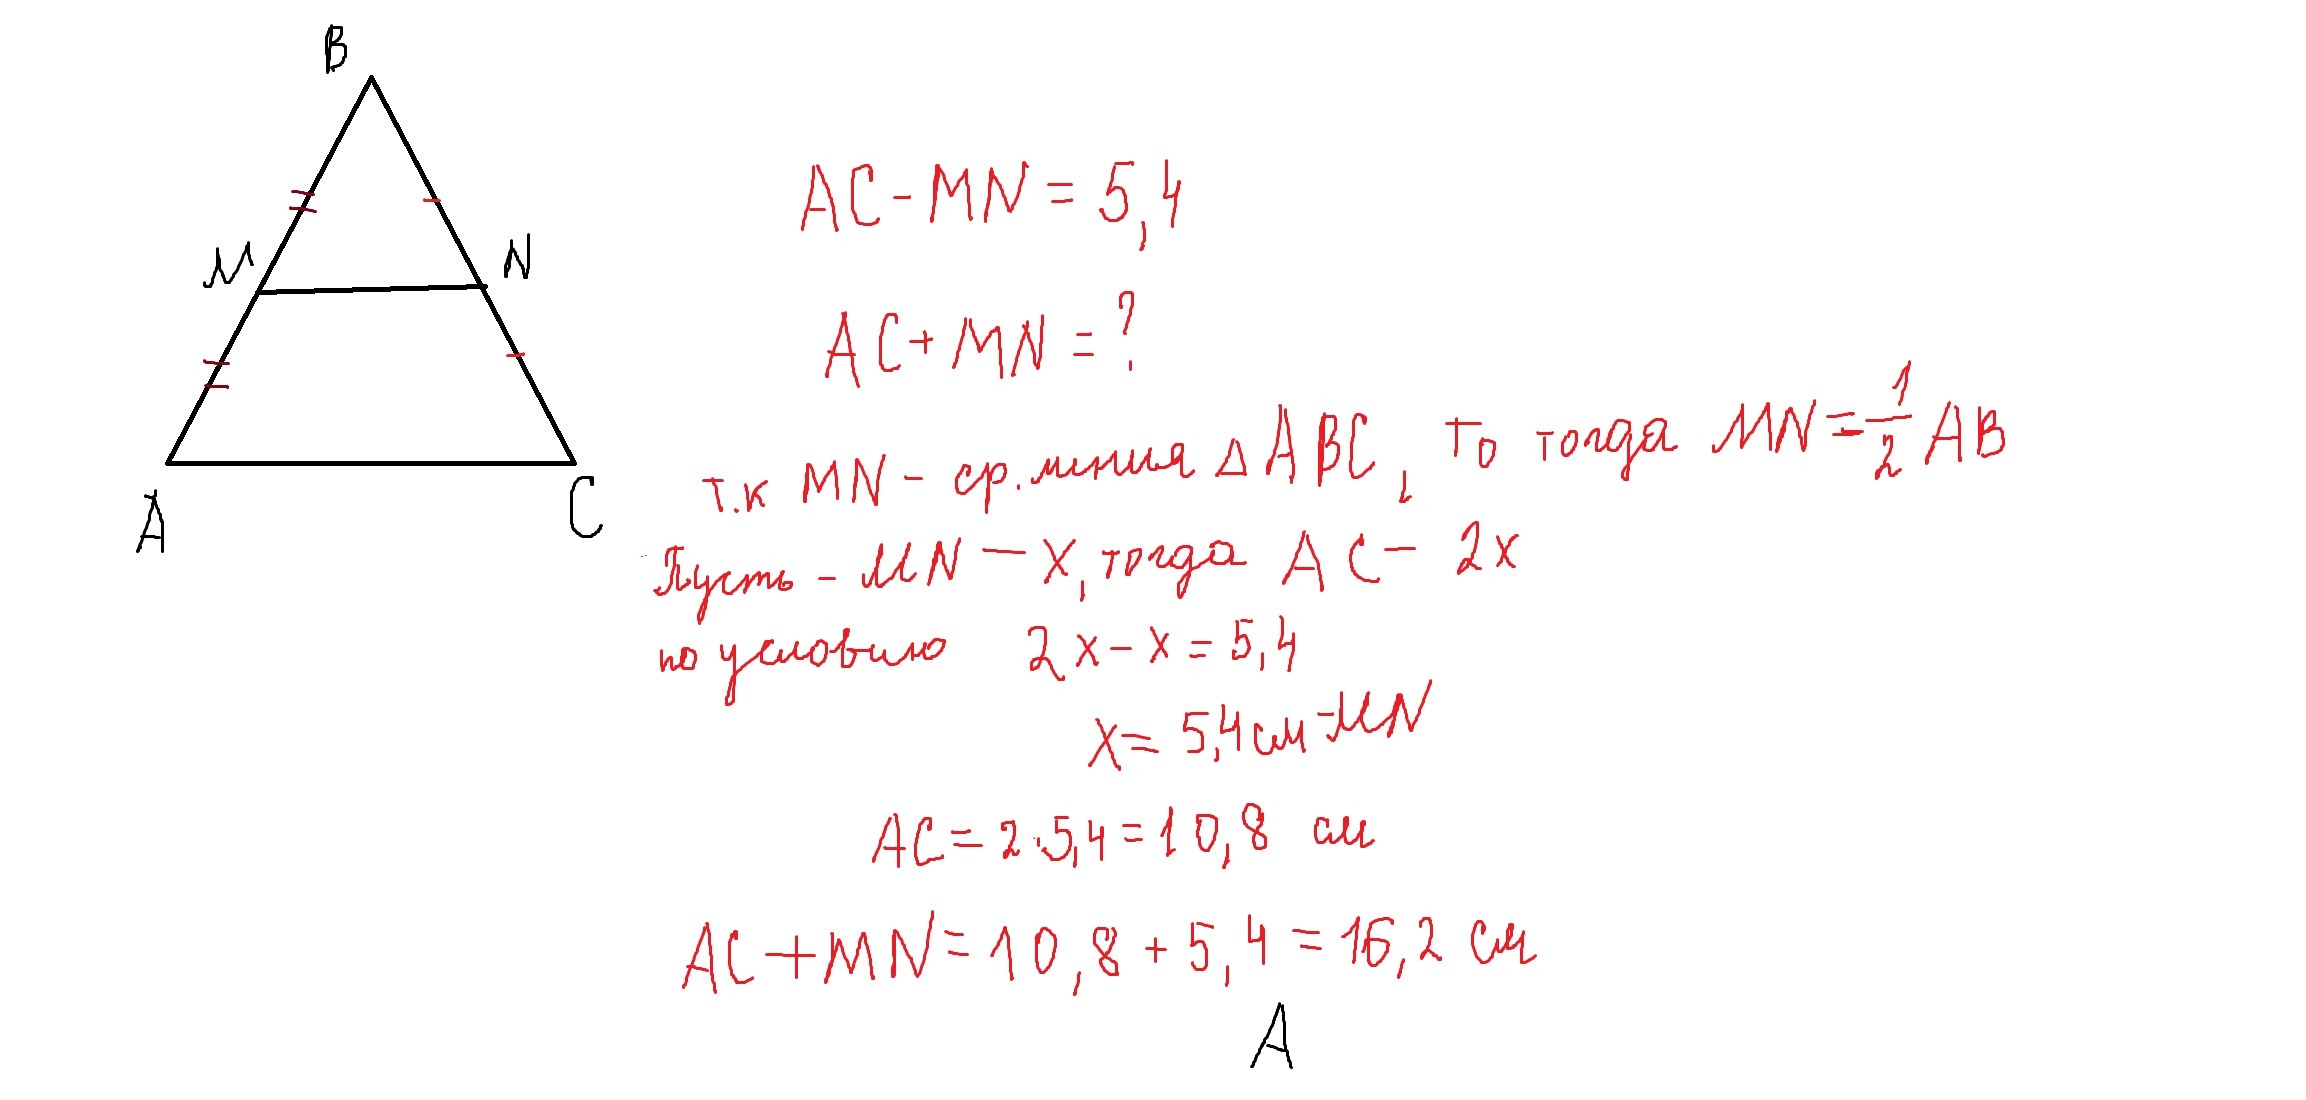 B
M
N
A
C
AC - MN = 5,4
AC + MN = ?
т.к MN - ср. линия △ABC, то тогда MN = 1/2 AB
Пусть - MN — x, тогда AC — 2x
по условию 2x - x = 5,4
x = 5,4 см - MN
AC = 2·5,4 = 10,8 см
AC + MN = 10,8 + 5,4 = 16,2 см
A